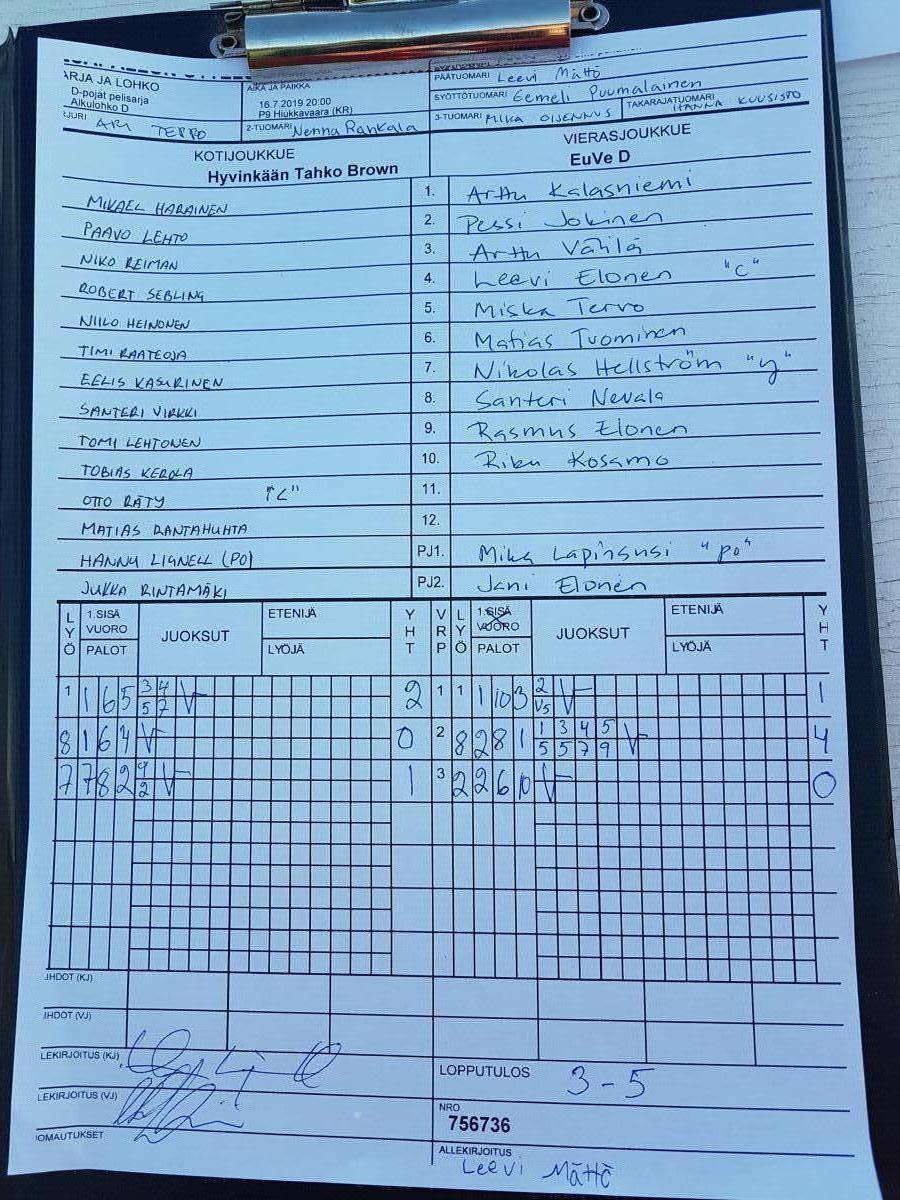 ARJA JA LOHKO
D-pojat pelisarja
Alkulohko D
ARI TERRO
AIKA JA PAIKKA
16.7.2019 20:00
P9 Hiukkavaara (KR)
2-TUOMARI Nenna Rankala
PÄÄTUOMARI Leevi Mättö
SYÖTTÖTUOMARI Eemeli Puumalainen
3-TUOMARI MIKA OIJENNUS TAKARAJATUOMARI HANNA KUUSISTO
KOTIJOUKKUE VIERASJOUKKUE
Hyvinkään Tahko Brown EuVe D
MIKAEL HARAINEN 1. Arttu Kalasniemi
PAAVO LEHTO 2. Pessi Jokinen
NIKO REIMAN 3. Arttu Välilä
ROBERT SEBLING 4. Leevi Elonen "C"
NIILO HEINONEN 5. Miska Tervo
TIMI RAATEOJA 6. Matias Tuominen
EELIS KASURINEN 7. Nikolas Hellström "y"
SANTERI VIRKKI 8. Santeri Nevala
TOMI LEHTONEN 9. Rasmus Elonen
TOBIAS KEROLA 10. Riku Kosamo
OTTO RÄTY "C" 11.
MATIAS RANTAHUHTA 12.
HANNU LIGNELL (PO) PJ1. Mika Lapinsusi "po"
JUKKA RINTAMÄKI PJ2. Jani Elonen
LYÖ 1.SISÄ VUORO PALOT JUOKSUT ETENIJÄ LYÖJÄ YHT VRP LYÖ 1.SISÄ VUORO PALOT JUOKSUT ETENIJÄ LYÖJÄ YHT
1 1 6 5 3 4 V 2 1 1 1 10 3 2 V 1
5 7 V5
8 1 6 7 V 0 2 8 2 8 1 1 3 4 5 V 4
5 5 7 9
7 7 8 2 9 V 1 3 2 2 6 10 V 0
2
JHDOT (KJ)
JHDOT (VJ)
LEKIRJOITUS (KJ)
LEKIRJOITUS (VJ)
OMAUTUKSET
LOPPUTULOS 3-5
NRO
756736
ALLEKIRJOITUS
Leevi Mättö